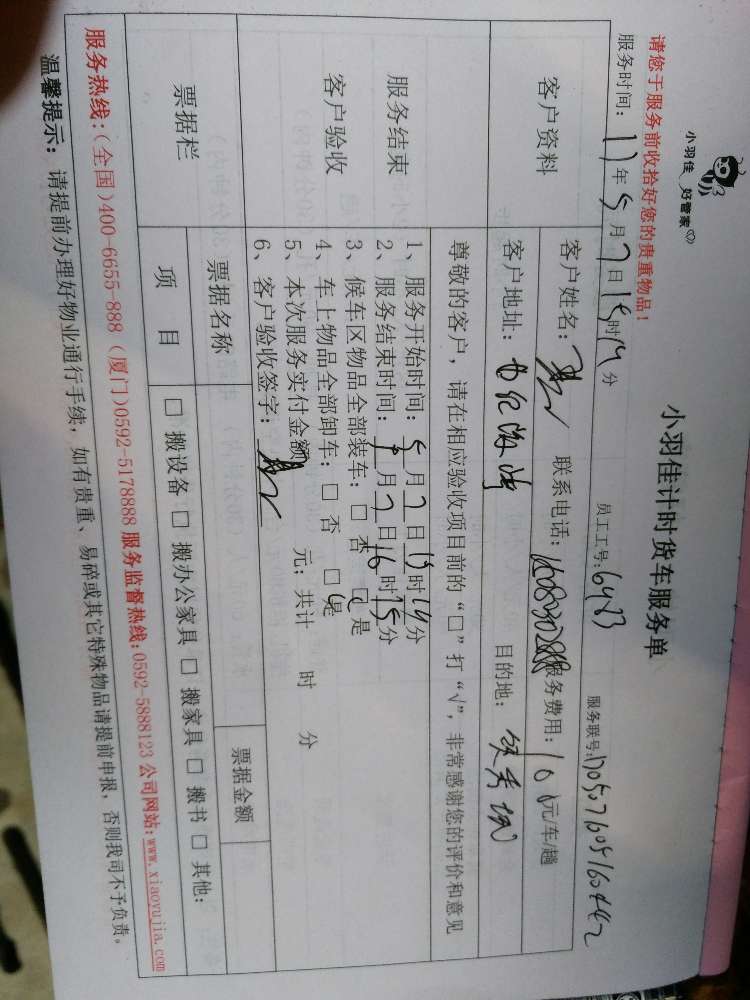 小羽佳 好管家
小羽佳计时货车服务单
请您于服务前收拾好您的贵重物品！
服务时间：17年5月7日15时14分 员工工号：6483 服务联号：
客户资料
客户姓名： 联系电话： 服务费用： 元/车/趟
客户地址：世纪 目的地：
服务结束
客户验收
尊敬的客户，请在相应验收项目前的“□”打“√”，非常感谢您的评价和意见
1、服务开始时间：5月7日15时14分
2、服务结束时间：月7日16时15分
3、候车区物品全部装车：□ 否 □ 是
4、车上物品全部卸车：□ 否 □ 是
5、本次服务实付金额 元；共计 时 分
6、客户验收签字：
票据栏
票据名称 票据金额
项 目
□ 搬设备 □ 搬办公家具 □ 搬家具 □ 搬书 □ 其他：
服务热线：(全国)400-6655-888 (厦门)0592-5178888 服务监督热线：0592-5888123 公司网站：www.xiaoyujia.com
温馨提示：请提前办理好物业通行手续，如有贵重、易碎或其它特殊物品请提前申报，否则我司不予负责。